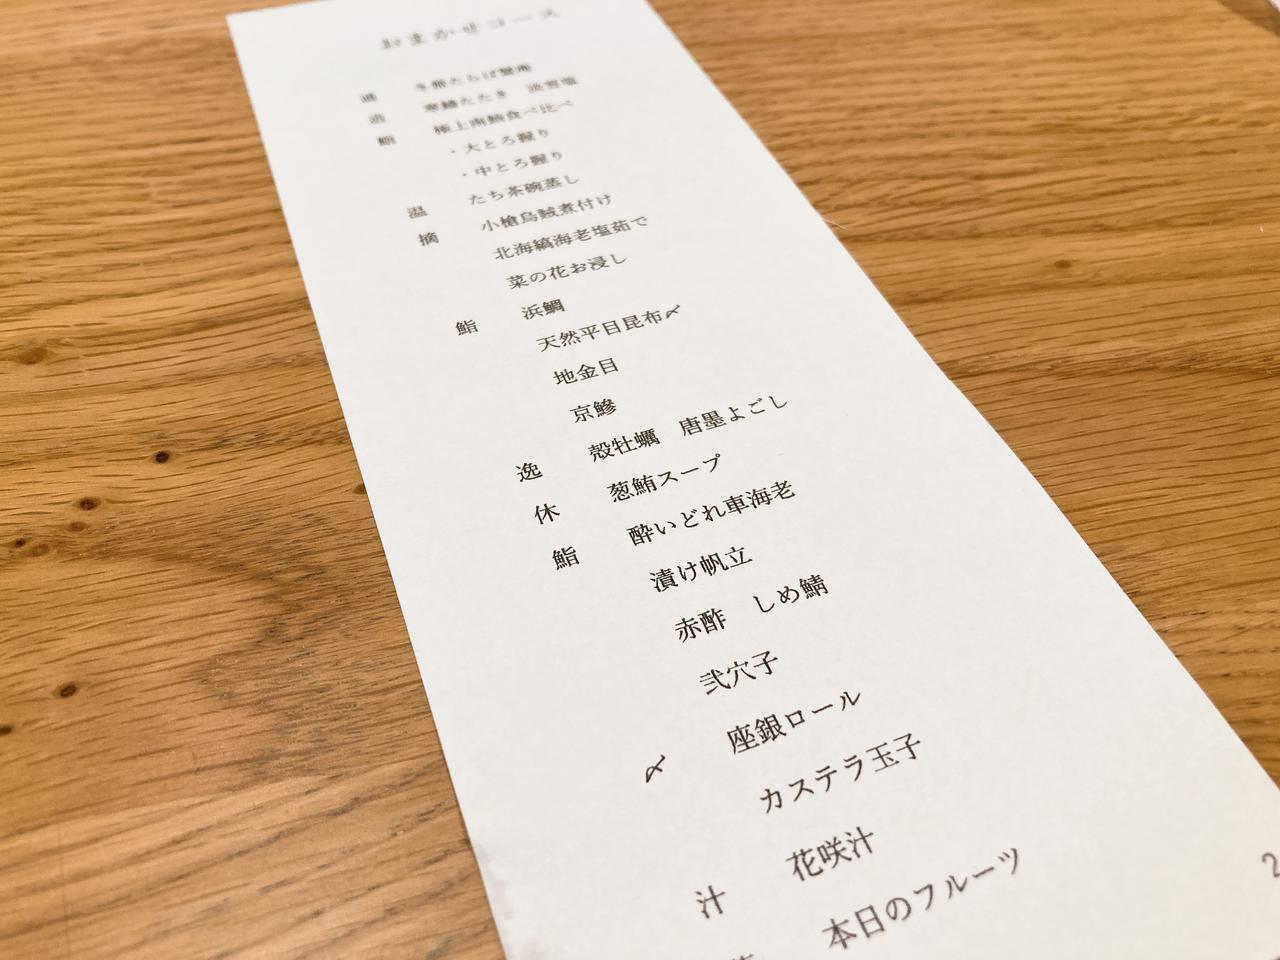 おまかせコース
造 寒鰆たたき
鮪 極上南鮪食べ比べ
・大とろ握り
・中とろ握り
温 たち茶碗蒸し
摘 小槍烏賊煮付け
北海縞海老塩茹で
菜の花お浸し
鮨 浜鯛
天然平目昆布〆
地金目
京鰺
逸 殻牡蠣 唐墨よごし
休 葱鮪スープ
鮨 酔いどれ車海老
漬け帆立
赤酢 しめ鯖
弐穴子
〆 座銀ロール
カステラ玉子
汁 花咲汁
本日のフルーツ
2